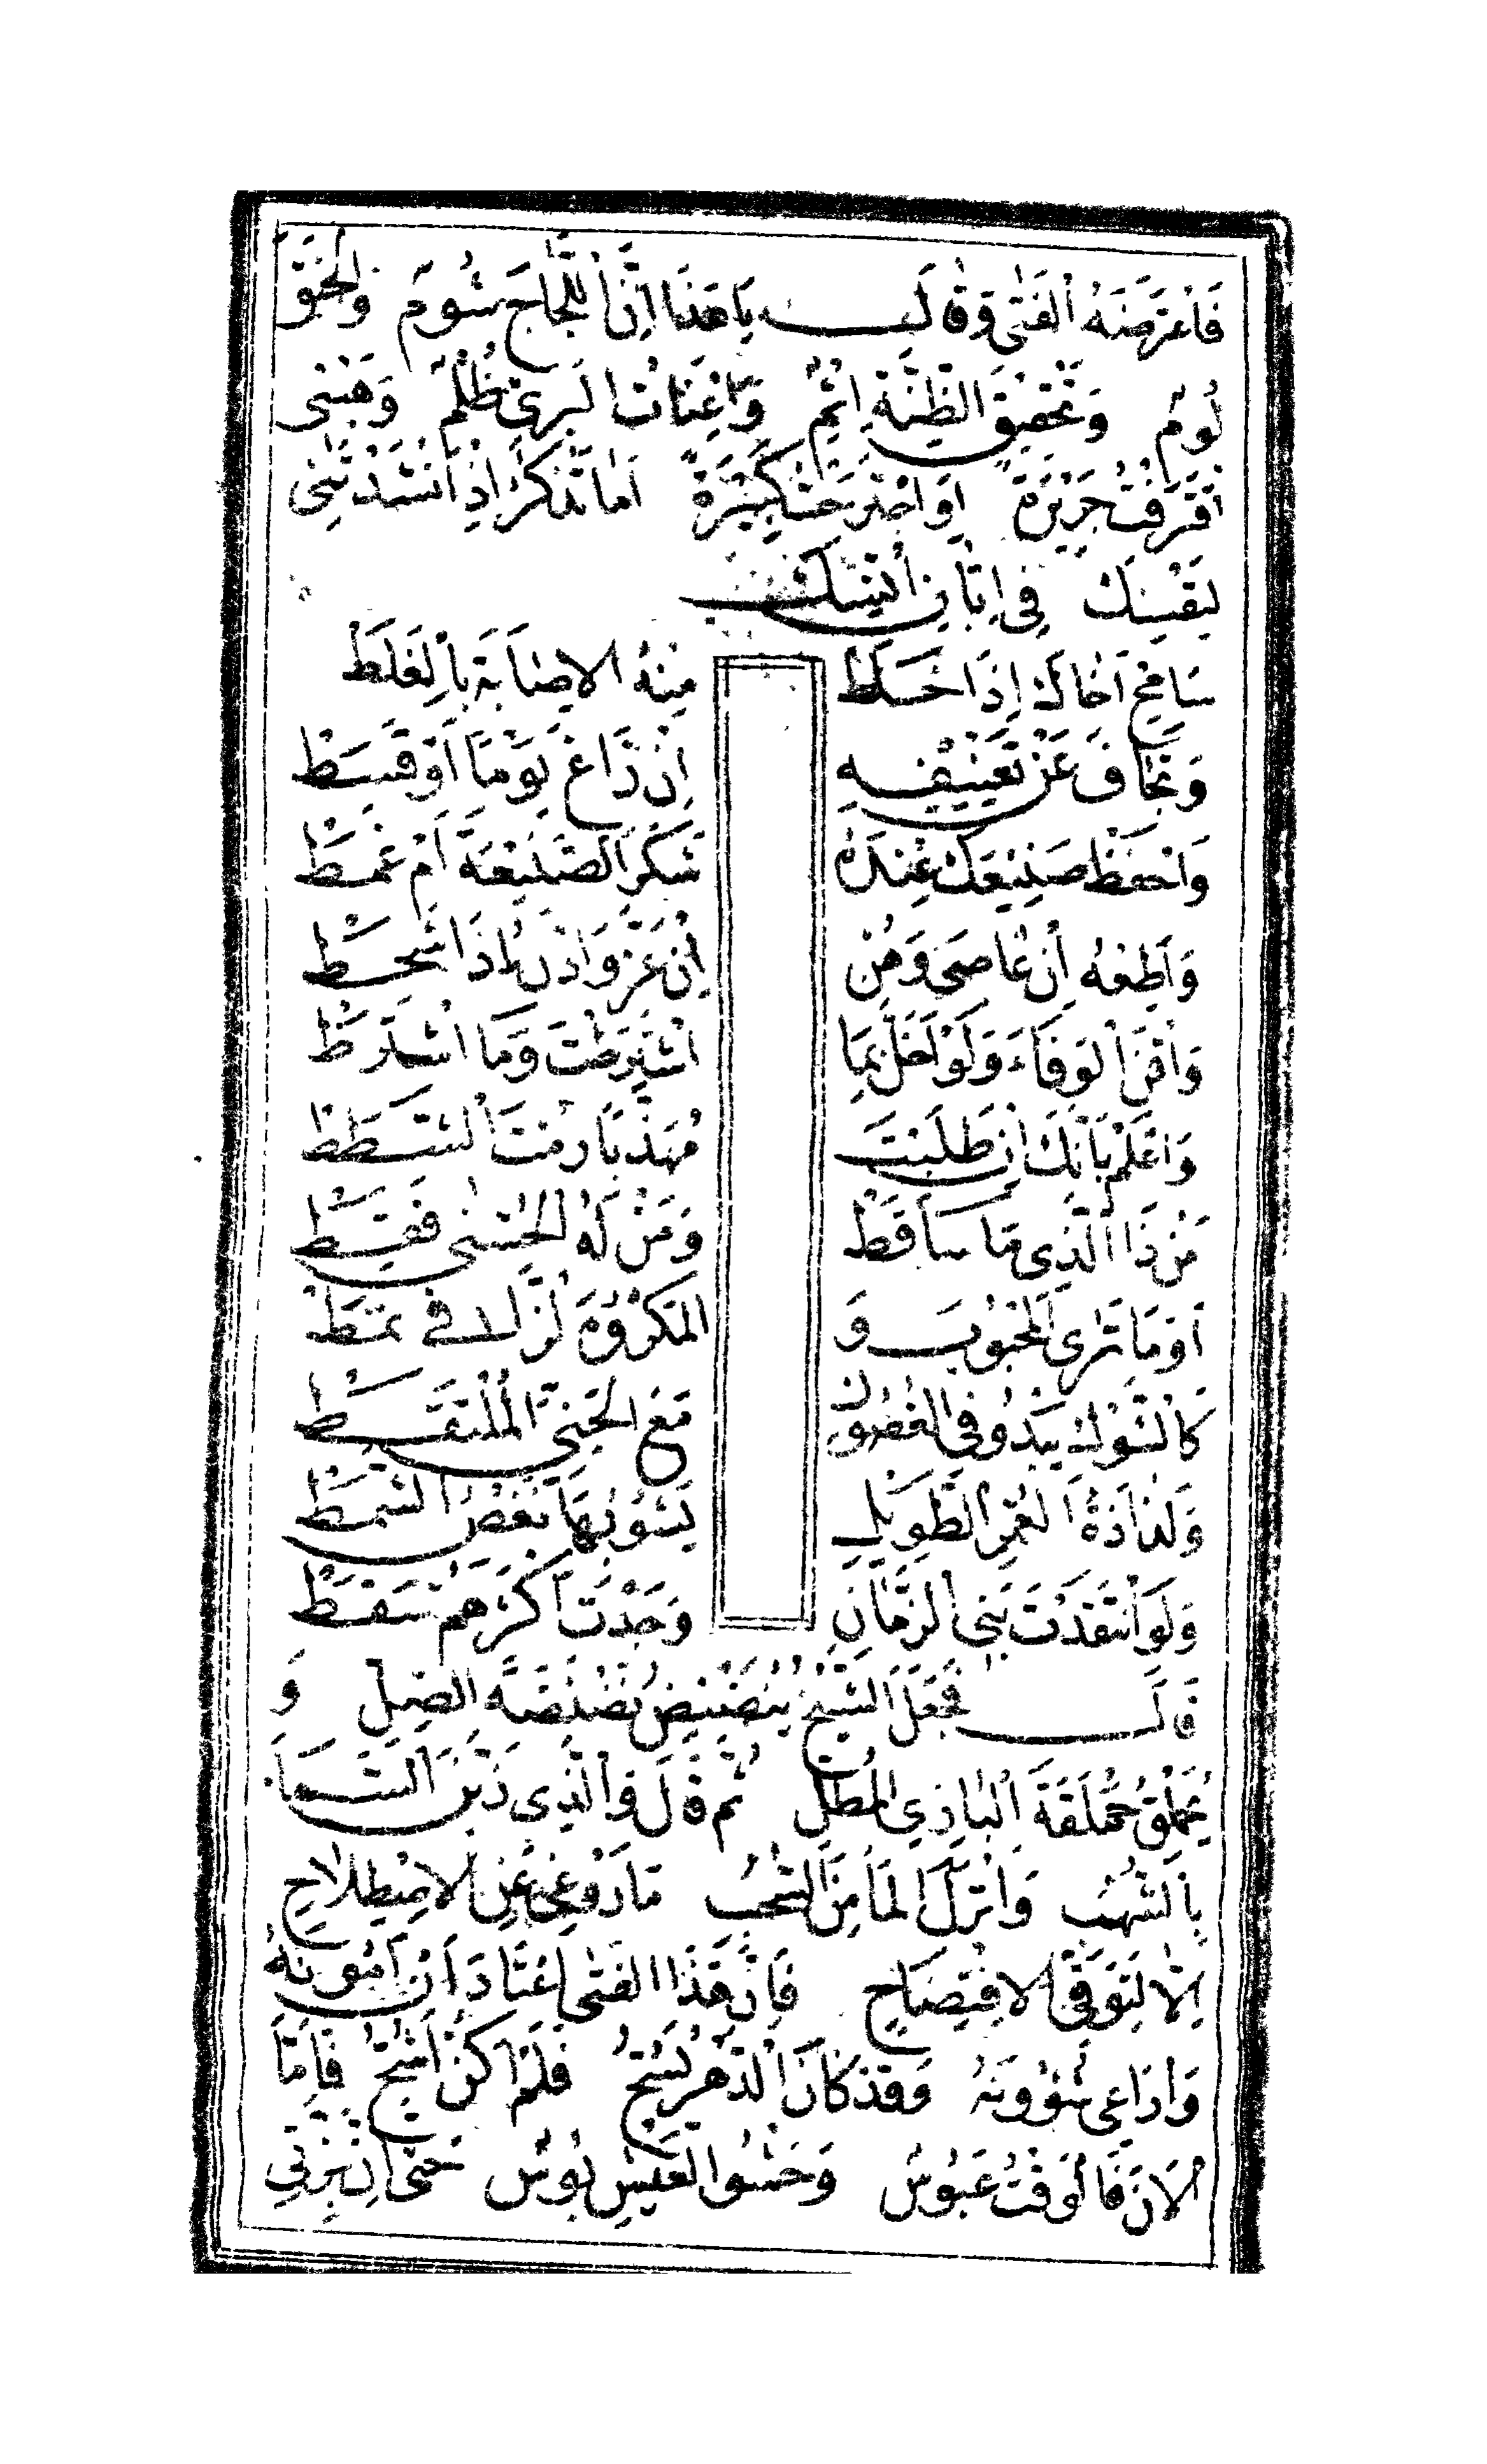 فَاعْتَرَضَهُ الْفَتٰى وَقَالَ يَا هَذَا اِنَّ اللَّجَاجَ شُومٌ وَالْحَنَقَ
لُومٌ وَتَحْقِيْقَ الظِّنَّةِ اِثْمٌ وَاِعْنَاتَ الْبَرِئِ ظُلْمٌ وَهَبْنِى
اقْتَرَفْتُ جَرِيْرَةً اَوِ اجْتَرَحْتُ كَبِيْرَةً اَمَا تَذْكُرُ اِذْ اَنْشَدْتَنِى
لِنَفْسِكَ فِى اِبَّانِ اُنْسِكَ
سَامِحْ اَخَاكَ اِذَا خَلَطْ مِنْهُ الْاِصَابَةَ بِالْغَلَطْ
وَتَجَافَ عَنْ تَعْنِيْفِهِ اِنْ زَاغَ يَوْمًا اَوْ قَسَطْ
وَاحْفَظْ صَنِيْعَكَ عِنْدَهُ شَكَرَ الصَّنِيْعَةَ اَمْ غَمَطْ
وَاَطِعْهُ اِنْ عَاصَى وَهُنْ اِنْ عَزَّ وَادْنُ اِذَا شَحَطْ
وَاقْنَ الْوَفَاءَ وَلَوْ اَخَلَّ بِمَا اشْتَرَطْتَ وَمَا اشْتَرَطْ
وَاعْلَمْ بِاَنَّكَ اِنْ طَلَبْتَ مُهَذَّبًا رُمْتَ الشَّطَطْ
مَنْ ذَا الَّذِى مَا سَاءَ قَطْ وَمَنْ لَهُ الْحُسْنٰى فَقَطْ
اَوَمَا تَرٰى الْمَحْبُوبَ وَ الْمَكْرُوْهَ لُزَّا فِى نَمَطْ
كَالشَّوْكِ يَبْدُو فِى الْغُصُونِ مَعَ الْجَنِىِّ الْمُلْتَقَطْ
وَلَذَاذَةُ الْعُمُرِ الطَّوِيْلِ يَشُوْبُهَا نَغَصُ الشَّمَطْ
وَلَوِ انْتَقَدْتَ بَنِى الزَّمَانِ وَجَدْتَ اَكْثَرَهُمْ سَقَطْ
قَالَ فَجَعَلَ الشَّيْخُ يُنَضْنِضُ نَضْنَضَةَ الصِّلِّ وَ
يُحَمْلِقُ حَمْلَقَةَ الْبَازِى الْمُطِلِّ ثُمَّ قَالَ وَالَّذِى زَيَّنَ السَّمَاءَ
بِالشُّهُبِ وَاَنْزَلَ الْمَاءَ مِنَ السُّحُبِ مَا رَوْغِى عَنِ الْاِصْطِلَاحِ
اِلَّا لِتَوَقِّى الْاِفْتِضَاحِ فَاِنَّ هَذَا الْفَتٰى اعْتَادَ اَنْ اَمُوْنَهُ
وَاُرَاعِى شُؤُوْنَهُ وَقَدْ كَانَ الدَّهْرُ يَسُحُّ فَلَمْ اَكُنْ اَشُحُّ فَاَمَّا
الْاٰنَ فَالْوَقْتُ عَبُوْسٌ وَحَشْوُ الْعَيْشِ بُوْسٌ حَتّٰى اِنَّ بِزَّتِى